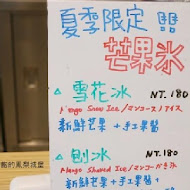 夏季限定
芒果冰
雪花冰 NT.180
Mango Snow Ice/マンゴースノーアイス
新鮮芒果 + 手工果醬
刨冰 NT.180
Mango Shaved Ice/マンゴーかき氷
新鮮芒果 + 手工果醬